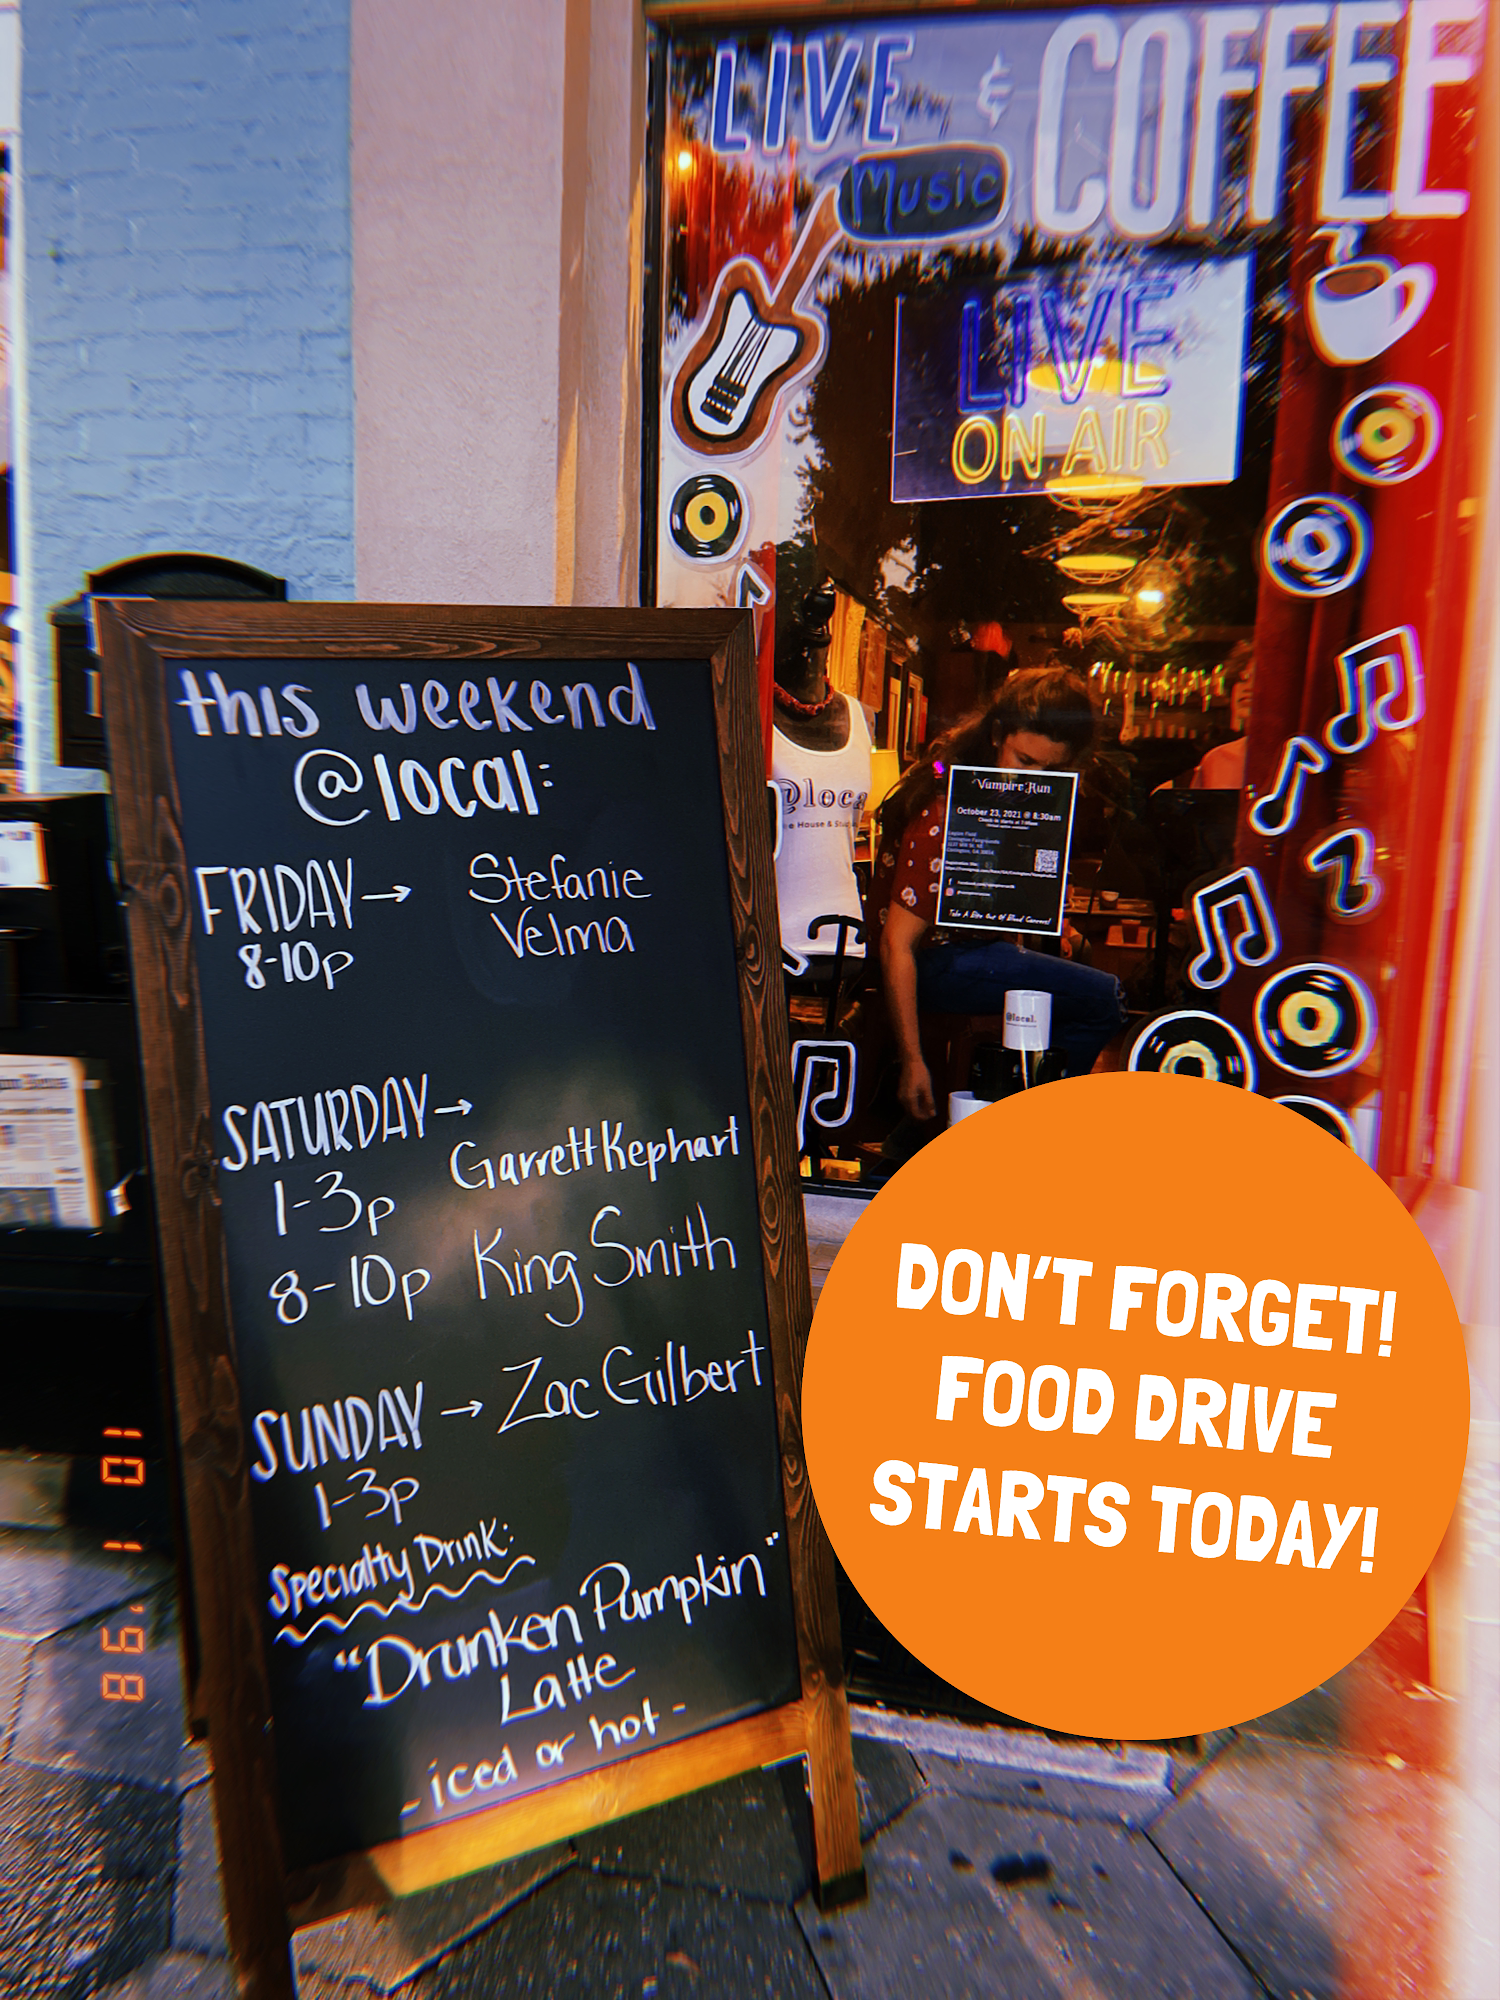 LIVE & COFFEE
Music
LIVE
ON AIR
this weekend
@local:
FRIDAY → Stefanie
8-10p Velma
SATURDAY →
1-3p Garrett Kephart
8-10p King Smith
SUNDAY → Zac Gilbert
1-3p
Specialty Drink:
"Drunken Pumpkin"
Latte
- iced or hot -
Vampire Run
October 23, 2021 @ 8:30am
Take A Bite Out Of Blood Cancers!
@loca
House & Stu
@local.
DON'T FORGET!
FOOD DRIVE
STARTS TODAY!
'98 1 01